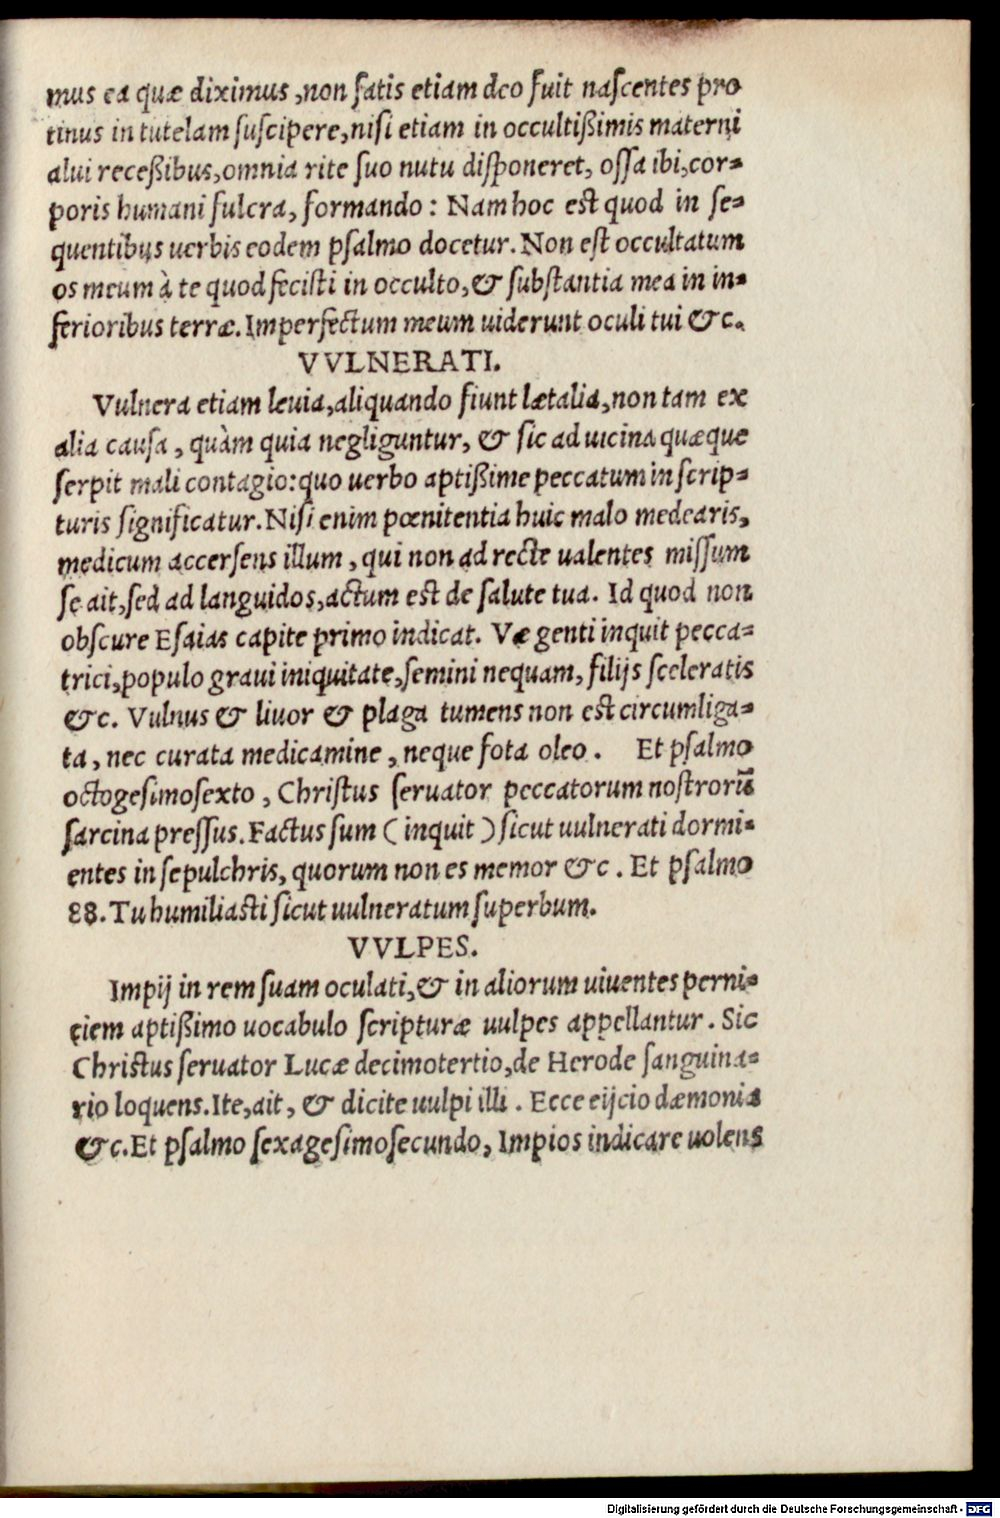 mus ea quæ diximus, non satis etiam deo fuit nascentes pro
tinus in tutelam suscipere, nisi etiam in occultißimis materni
alui receßibus, omnia rite suo nutu disponeret, ossa ibi, cor-
poris humani fulcra, formando: Nam hoc est quod in se-
quentibus uerbis eodem psalmo docetur. Non est occultatum
os meum à te quod fecisti in occulto, & substantia mea in in-
ferioribus terræ. Imperfectum meum uiderunt oculi tui &c.
VVLNERATI.
Vulnera etiam leuia, aliquando fiunt lætalia, non tam ex
alia causa, quàm quia negliguntur, & sic ad uicina quæque
serpit mali contagio: quo uerbo aptißime peccatum in scrip-
turis significatur. Nisi enim pœnitentia huic malo medearis,
medicum accersens illum, qui non ad recte ualentes missum
se ait, sed ad languidos, actum est de salute tua. Id quod non
obscure Esaias capite primo indicat. Væ genti inquit pecca-
trici, populo graui iniquitate, semini nequam, filijs sceleratis
&c. Vulnus & liuor & plaga tumens non est circumliga-
ta, nec curata medicamine, neque fota oleo. Et psalmo
octogesimosexto, Christus seruator peccatorum nostrorū
sarcina pressus. Factus sum (inquit) sicut uulnerati dormi-
entes in sepulchris, quorum non es memor &c. Et psalmo
88. Tu humiliasti sicut uulneratum superbum.
VVLPES.
Impij in rem suam oculati, & in aliorum uiuentes perni-
ciem aptißimo uocabulo scripturæ uulpes appellantur. Sic
Christus seruator Lucæ decimotertio, de Herode sanguina-
rio loquens. Ite, ait, & dicite uulpi illi. Ecce eijcio dæmonia
&c. Et psalmo sexagesimosecundo, Impios indicare uolens
Digitalisierung gefördert durch die Deutsche Forschungsgemeinschaft - DFG